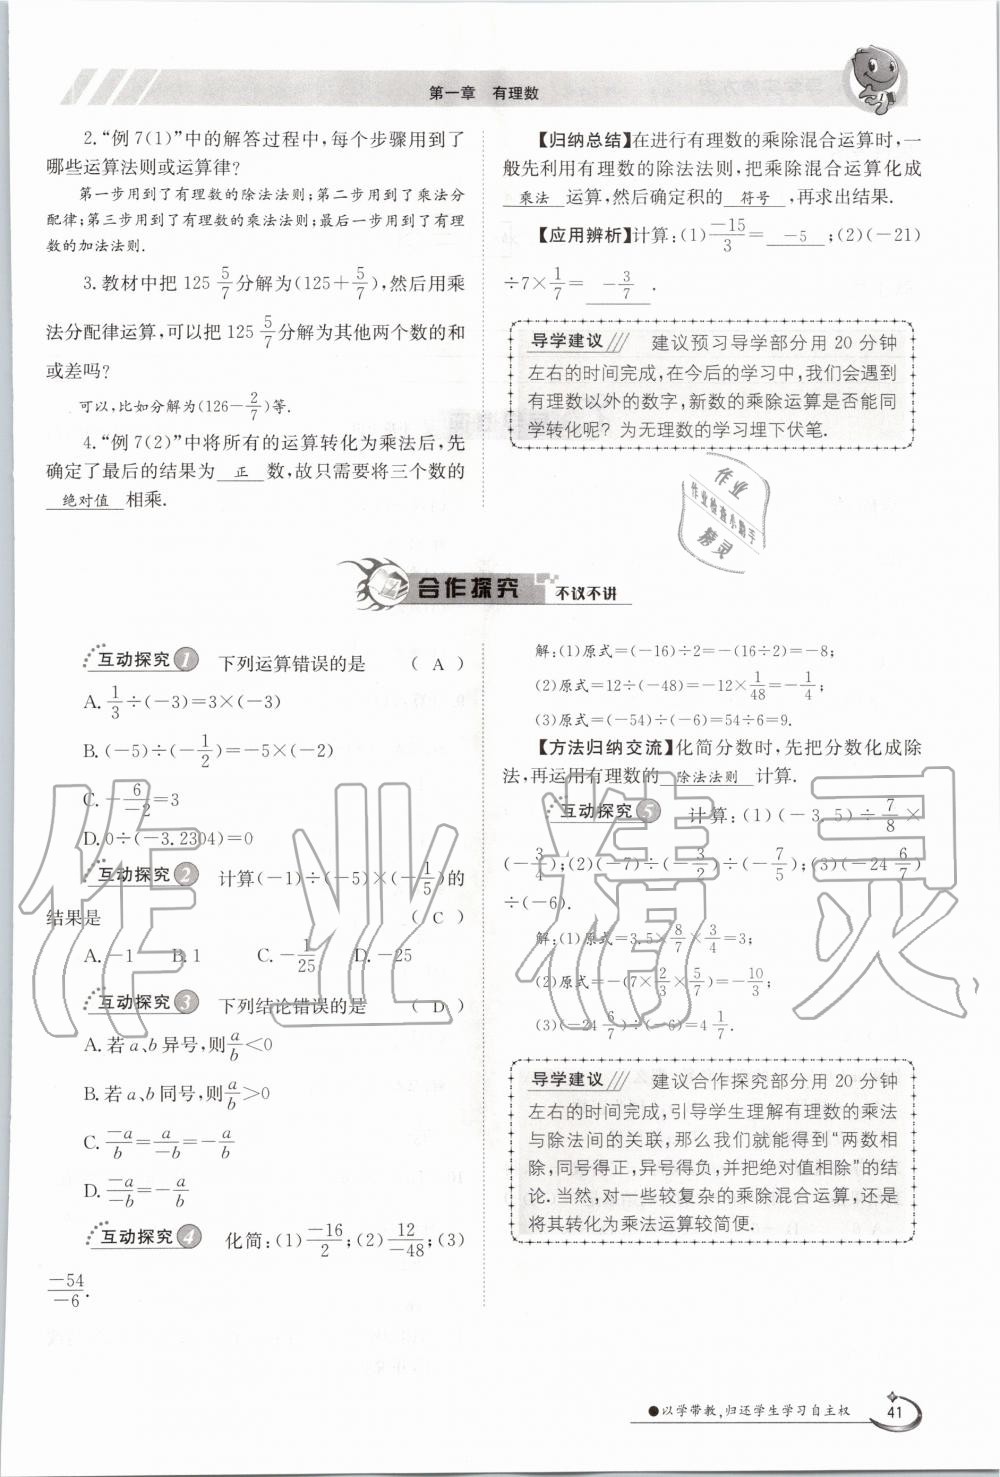 第一章 有理数
2.“例7(1)”中的解答过程中,每个步骤用到了
哪些运算法则或运算律?
第一步用到了有理数的除法法则;第二步用到了乘法分
配律;第三步用到了有理数的乘法法则;最后一步用到了有理
数的加法法则.
3.教材中把 125 5/7 分解为(125+5/7),然后用乘
法分配律运算,可以把 125 5/7 分解为其他两个数的和
或差吗?
可以,比如分解为(126-2/7)等.
4.“例7(2)”中将所有的运算转化为乘法后,先
确定了最后的结果为 正 数,故只需要将三个数的
绝对值 相乘.
【归纳总结】在进行有理数的乘除混合运算时,一
般先利用有理数的除法法则,把乘除混合运算化成
乘法 运算,然后确定积的 符号 ,再求出结果.
【应用辨析】计算:(1)-15/3= -5 ;(2)(-21)
÷7×1/7= -3/7 .
导学建议 建议预习导学部分用 20 分钟
左右的时间完成,在今后的学习中,我们会遇到
有理数以外的数字,新数的乘除运算是否能同
学转化呢? 为无理数的学习埋下伏笔.
作业
作业检查小助手
精灵
合作探究 不议不讲
互动探究1 下列运算错误的是 ( A )
A. 1/3÷(-3)=3×(-3)
B. (-5)÷(-1/2)=-5×(-2)
C. -6/-2=3
D. 0÷(-3.2304)=0
互动探究2 计算(-1)÷(-5)×(-1/5)的
结果是 ( C )
A. -1 B. 1 C. -1/25 D. -25
互动探究3 下列结论错误的是 ( D )
A. 若 a、b 异号,则a/b<0
B. 若 a、b 同号,则a/b>0
C. -a/b=a/-b=-a/b
D. -a/-b=-a/b
互动探究4 化简:(1)-16/2;(2)12/-48;(3)
-54/-6.
解:(1)原式=(-16)÷2=-(16÷2)=-8;
(2)原式=12÷(-48)=-12×1/48=-1/4;
(3)原式=(-54)÷(-6)=54÷6=9.
【方法归纳交流】化简分数时,先把分数化成除
法,再运用有理数的 除法法则 计算.
互动探究5 计算:(1)(-3.5)÷7/8×
(-3/4);(2)(-7)÷(-3/2)÷(-7/5);(3)(-24 6/7)
÷(-6).
解:(1)原式=3.5×8/7×3/4=3;
(2)原式=-(7×2/3×5/7)=-10/3;
(3)(-24 6/7)÷(-6)=4 1/7.
导学建议 建议合作探究部分用 20 分钟
左右的时间完成,引导学生理解有理数的乘法
与除法间的关联,那么我们就能得到“两数相
除,同号得正,异号得负,并把绝对值相除”的结
论.当然,对一些较复杂的乘除混合运算,还是
将其转化为乘法运算较简便.
作业精灵
●以学带教,归还学生学习自主权 41